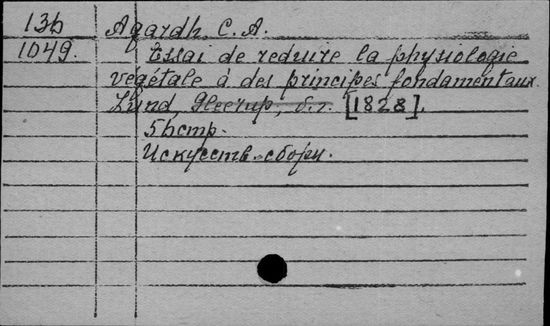 13b Agardh, C. A.
1049. Essai de reduire la physiologie
vegétale à des principes fondamentaux.
Lund, Gleerup, б.г. [1828].
51 стр.
Искусств. сборн.